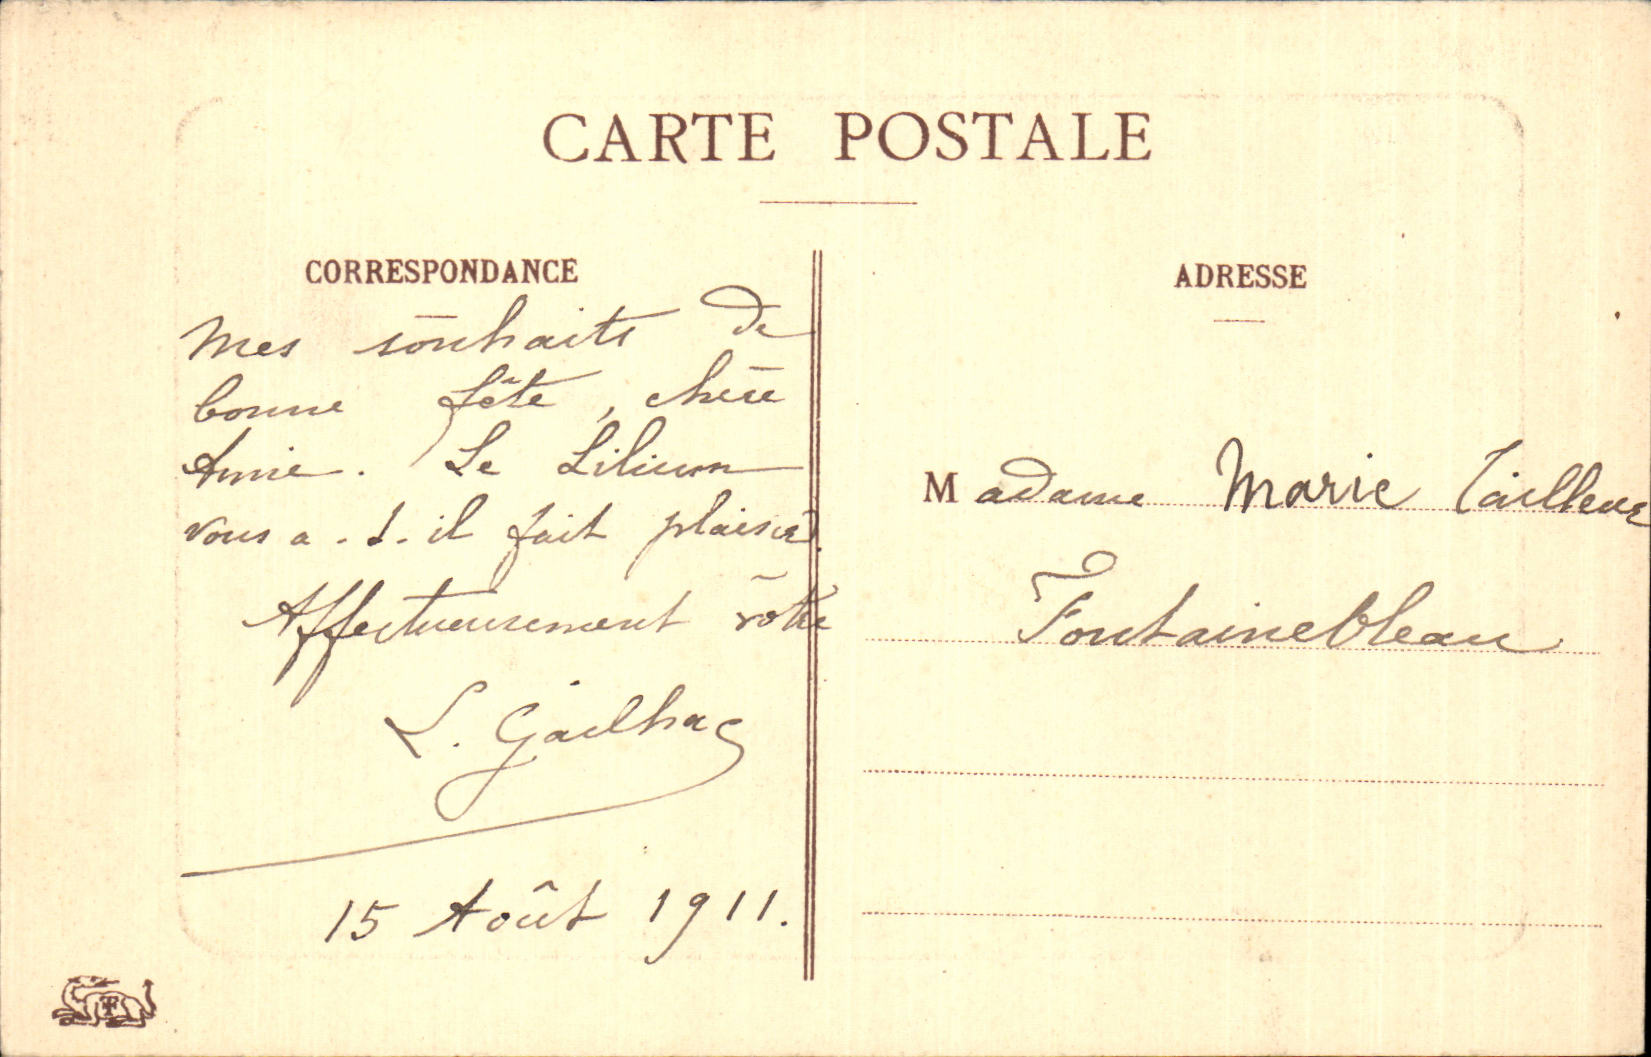 CARTE POSTALE
CORRESPONDANCE
Mes souhaits de
bonne fête, chère
Amie. Le Lilium
vous a-t-il fait plaisir?
Affectueusement vôtre
L. Gailhac
15 Août 1911.
ADRESSE
Madame Marie Tailleur
Fontainebleau